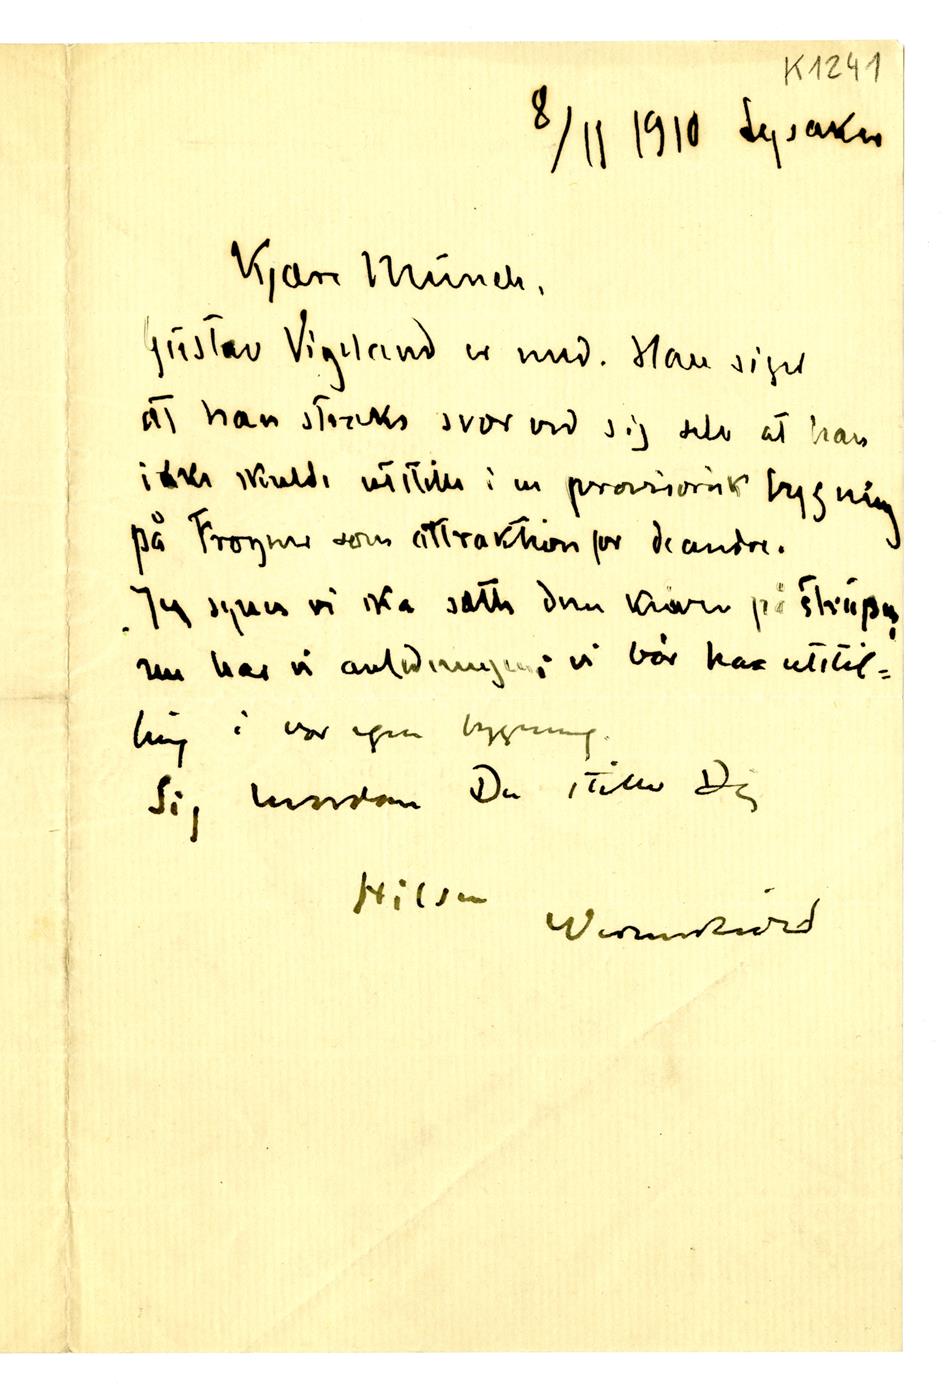 K1241
8/11 1910 Lysaker
Kjære Munch.
Gustav Vigeland er med. Han siger
at han straks svor ved sig selv at han
ikke skulde utstille i en provisorisk bygning
på Frogner som attraktion for de andre.
Jeg synes vi ska sætte dem kniven på strupen,
nu har vi anledningen; vi bør ha utstil=
ling i vor egen bygning.
Sig hvordan Du stiller Dig
Hilsen
Werenskiold